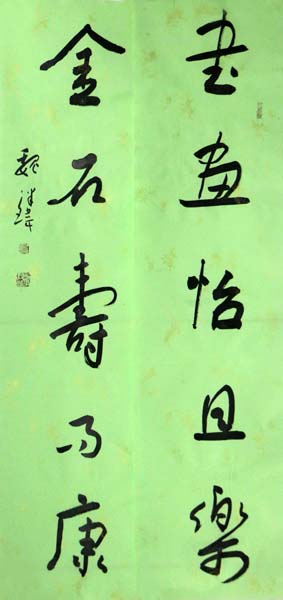 書畫怡且樂
金石壽而康
魏